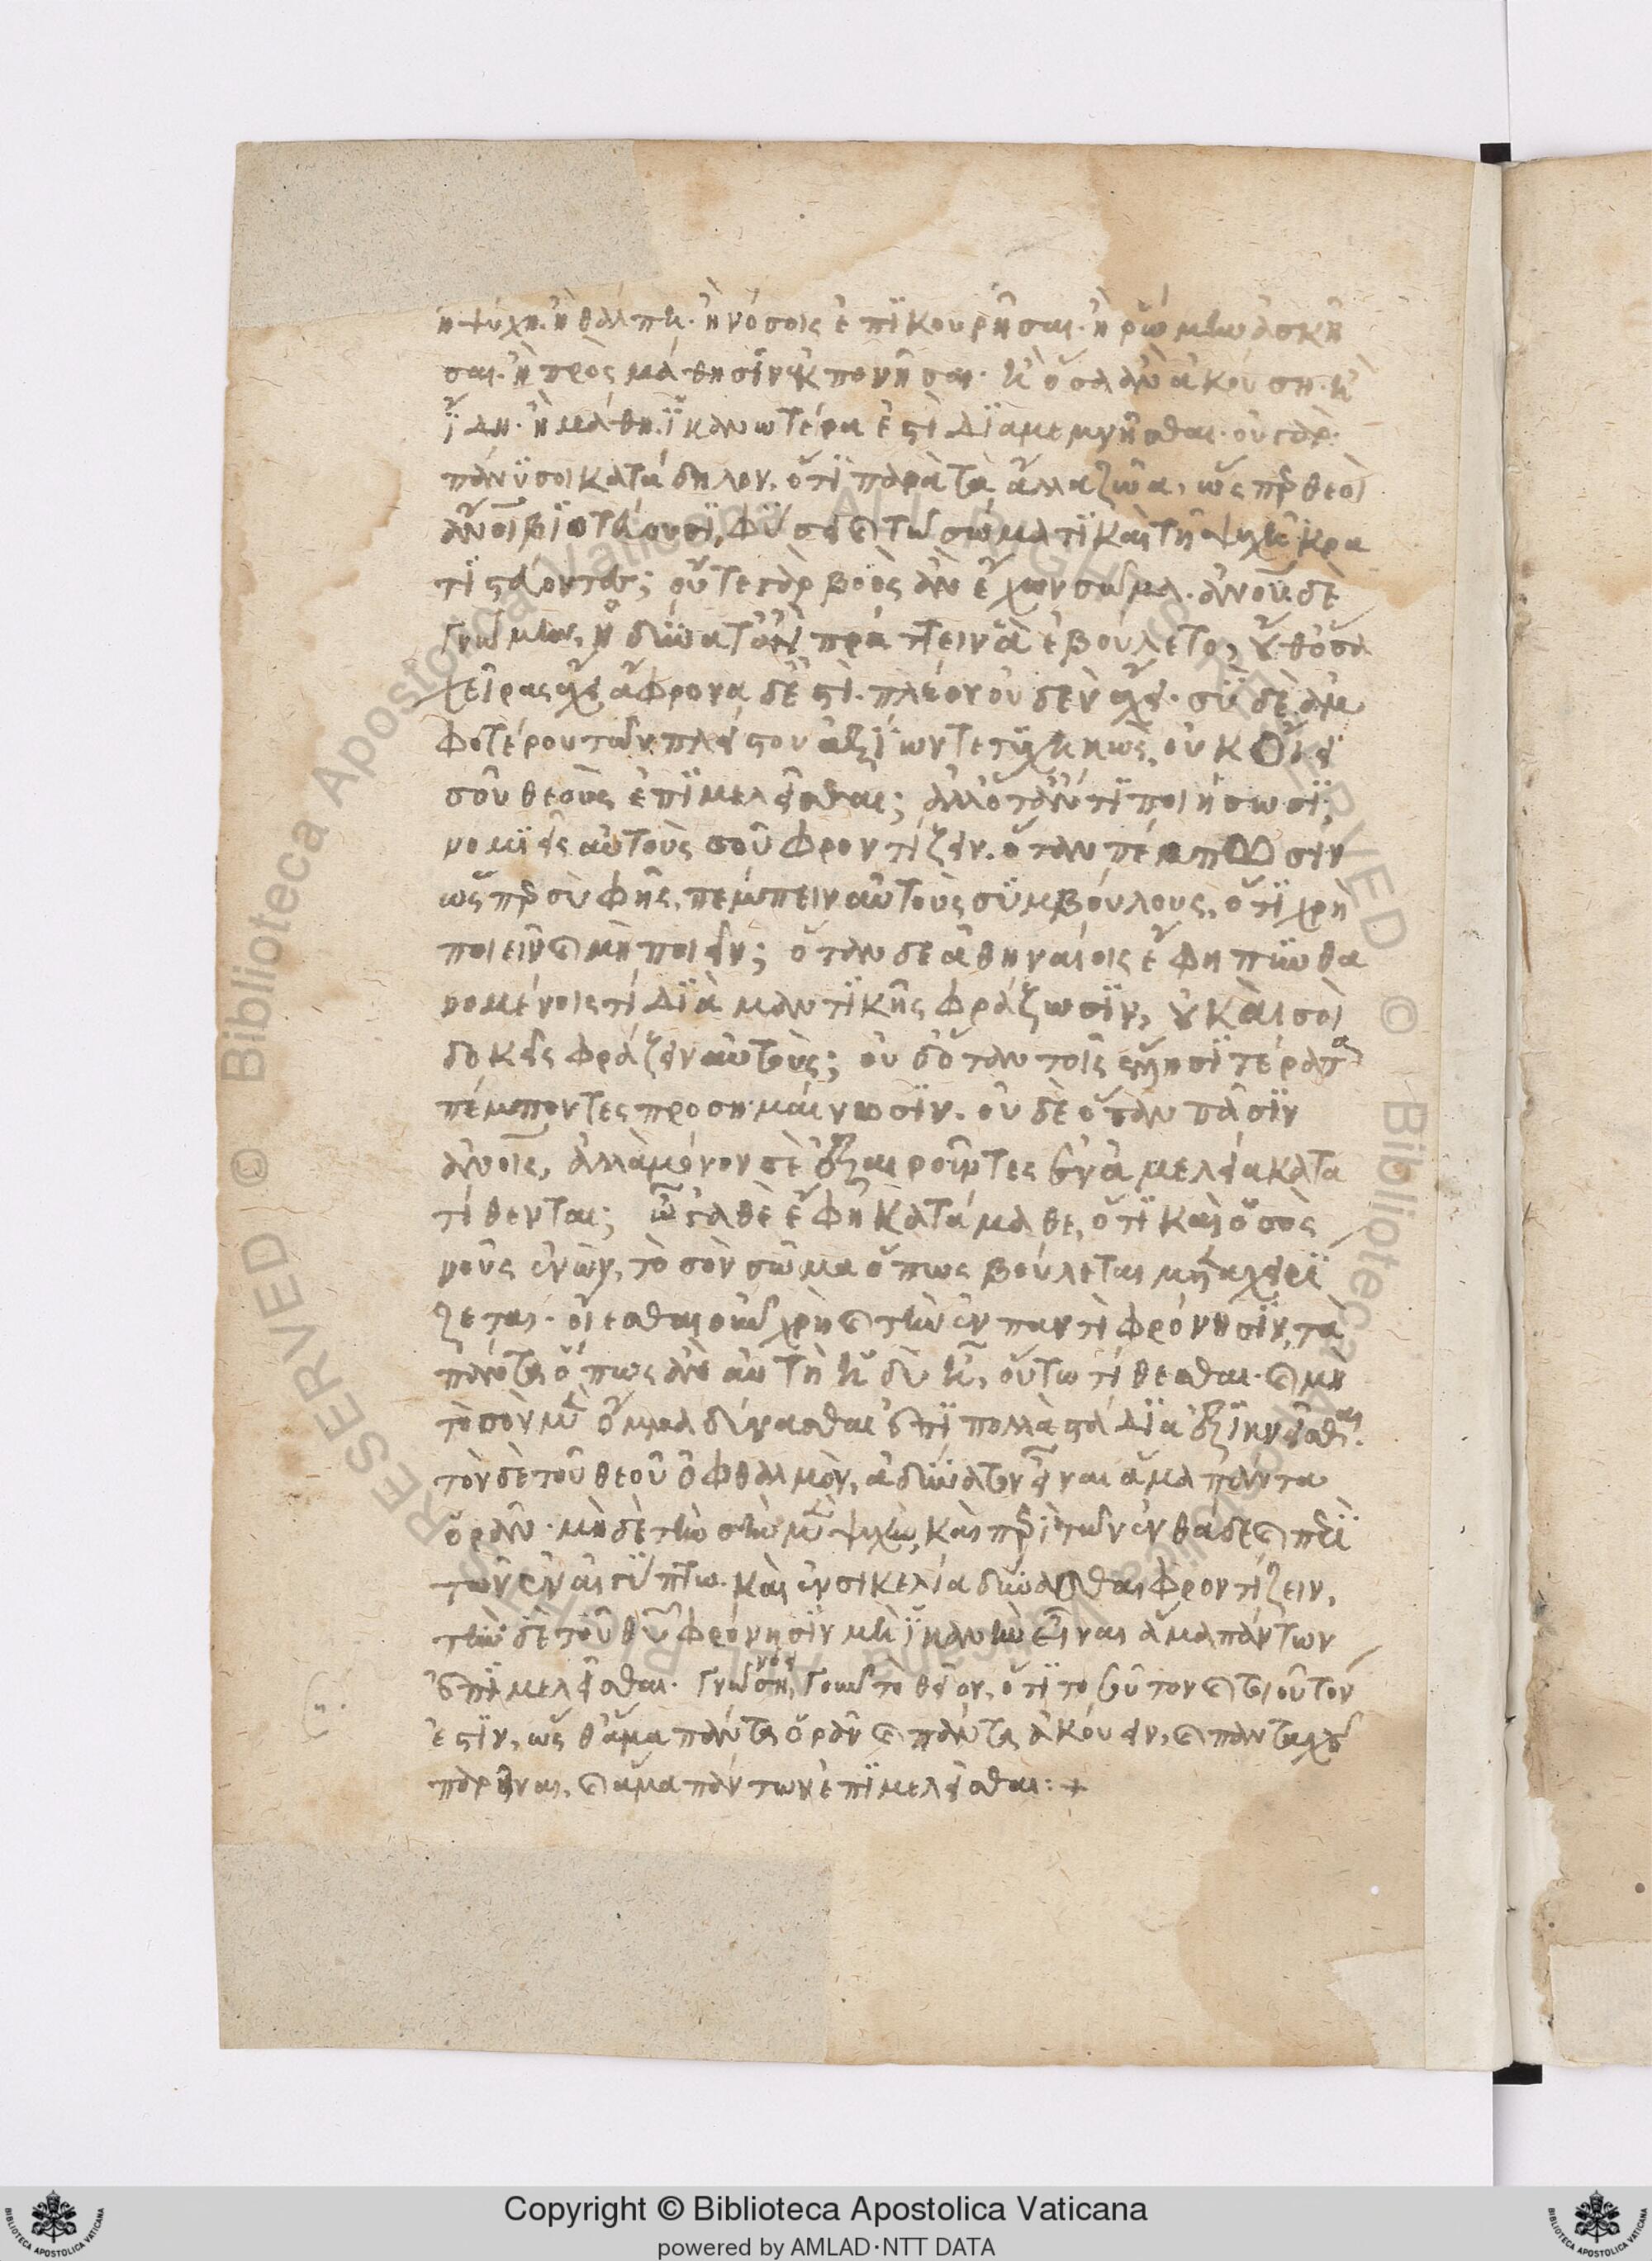 ἢ ψύχη. ἢ θάλπη. ἢ νόσοις ἐπϊκουρῆσαι. ἢ ῥώμην ἀσκῆ
σαι. ἢ πρὸς μάθησϊν ἐκπονῆσαι. ἢ ὅσα ἂν ἀκούση. ἢ
ἴδη. ἢ μάθη. ϊκανωτέρα ἐστὶ δϊαμεμνῆσθαι. οὐ γὰρ
πάνϋ σοι κατάδηλον. ὅτϊ παρὰ τὰ ἄλλα ζῶα, ὥσπερ θεοὶ
ἄνοι βϊοτεύουσϊ, φύσει καὶ τῶ σώματϊ καὶ τῆ ψυχῆ κρα
τϊστεύοντες; οὔτε γὰρ βοὸς ἂν ἔχων σῶμα. ἀνου δὲ
γνώμην, ἠδύνατ' ἂν πράττειν ἃ ἐβούλετο, οὔθ' ὅσα
χεῖρας ἔχει ἄφρονα δ' ἐστὶ. πλέον οὐδὲν ἔχει. σὺ δὲ ἀμ
φοτέρων τῶν πλείστου ἀξίων τετυχηκὼς, οὐκ οἴει
σοῦ θεοὺς ἐπϊμελεῖσθαι; ἀλλ' ὅταν τϊ ποιήσωσϊ,
νομϊεῖς αὐτοὺς σοῦ φροντίζειν. ὅταν πέμπωσϊν
ὥσπερ σὺ φῆς, πέμπειν αὐτοὺς συμβούλους, ὅτϊ χρὴ
ποιεῖν καὶ μὴ ποιεῖν; ὅταν δε ἀθηναίοις ἔφη πυνθα
νομένοις τϊ δϊὰ μαντϊκῆς φράζωσϊν, οὐ καὶ σοὶ
δοκεῖς φράζειν αὐτοὺς; οὐδ' ὅταν τοῖς ἕλλησϊ τέρατα
πέμποντες προσημαίνωσϊν. οὐδὲ ὅταν πᾶσϊν
ἀνοις, ἀλλὰ μόνον σὲ ἐξαιροῦντες ἐν ἀμελεία κατα
τίθενται; ὦγαθὲ ἔφη κατάμαθε, ὅτϊ καὶ ὁ σὸς
νοῦς ἐνὼν, τὸ σὸν σῶμα ὅπως βούλεται μεταχειρϊ
ζεται. οἴεσθαι οὖν χρὴ καὶ τὴν ἐν παντὶ φρόνησϊν, τὰ
πάντα ὅπως ἂν αὐτῆ ἡδὺ ἦ, οὕτω τίθεσθαι. καὶ μὴ
τὸ σὸν μὲν ὄμμα δύνασθαι ἐπϊ πολλὰ στάδϊα ἐξϊκνεῖσθαι.
τὸν δὲ τοῦ θεοῦ ὀφθαλμὸν, ἀδύνατον εἶναι ἅμα πάντα
ὁρᾶν. μὴ δὲ τὴν σὴν μὲν ψυχὴν, καὶ περὶ τῶν ἐνθάδε καὶ περὶ
τῶν ἐν αἰγύπτω. καὶ ἐν σικελία δύνασθαι φροντίζειν,
τὴν δὲ τοῦ θυ φρόνησϊν μὴ ϊκανὴν εἶναι ἅμα πάντων
ἐπϊμελεῖσθαι. γνώση τὸ θεῖον, ὅτϊ τοσοῦτον καὶ τοιοῦτόν
ἐστϊν, ὥσθ' ἅμα πάντα ὁρᾶν καὶ πάντα ἀκούειν, καὶ πανταχοῦ
παρεῖναι, καὶ ἅμα πάντων ἐπϊμελεῖσθαι: +
Copyright © Biblioteca Apostolica Vaticana
powered by AMLAD·NTT DATA